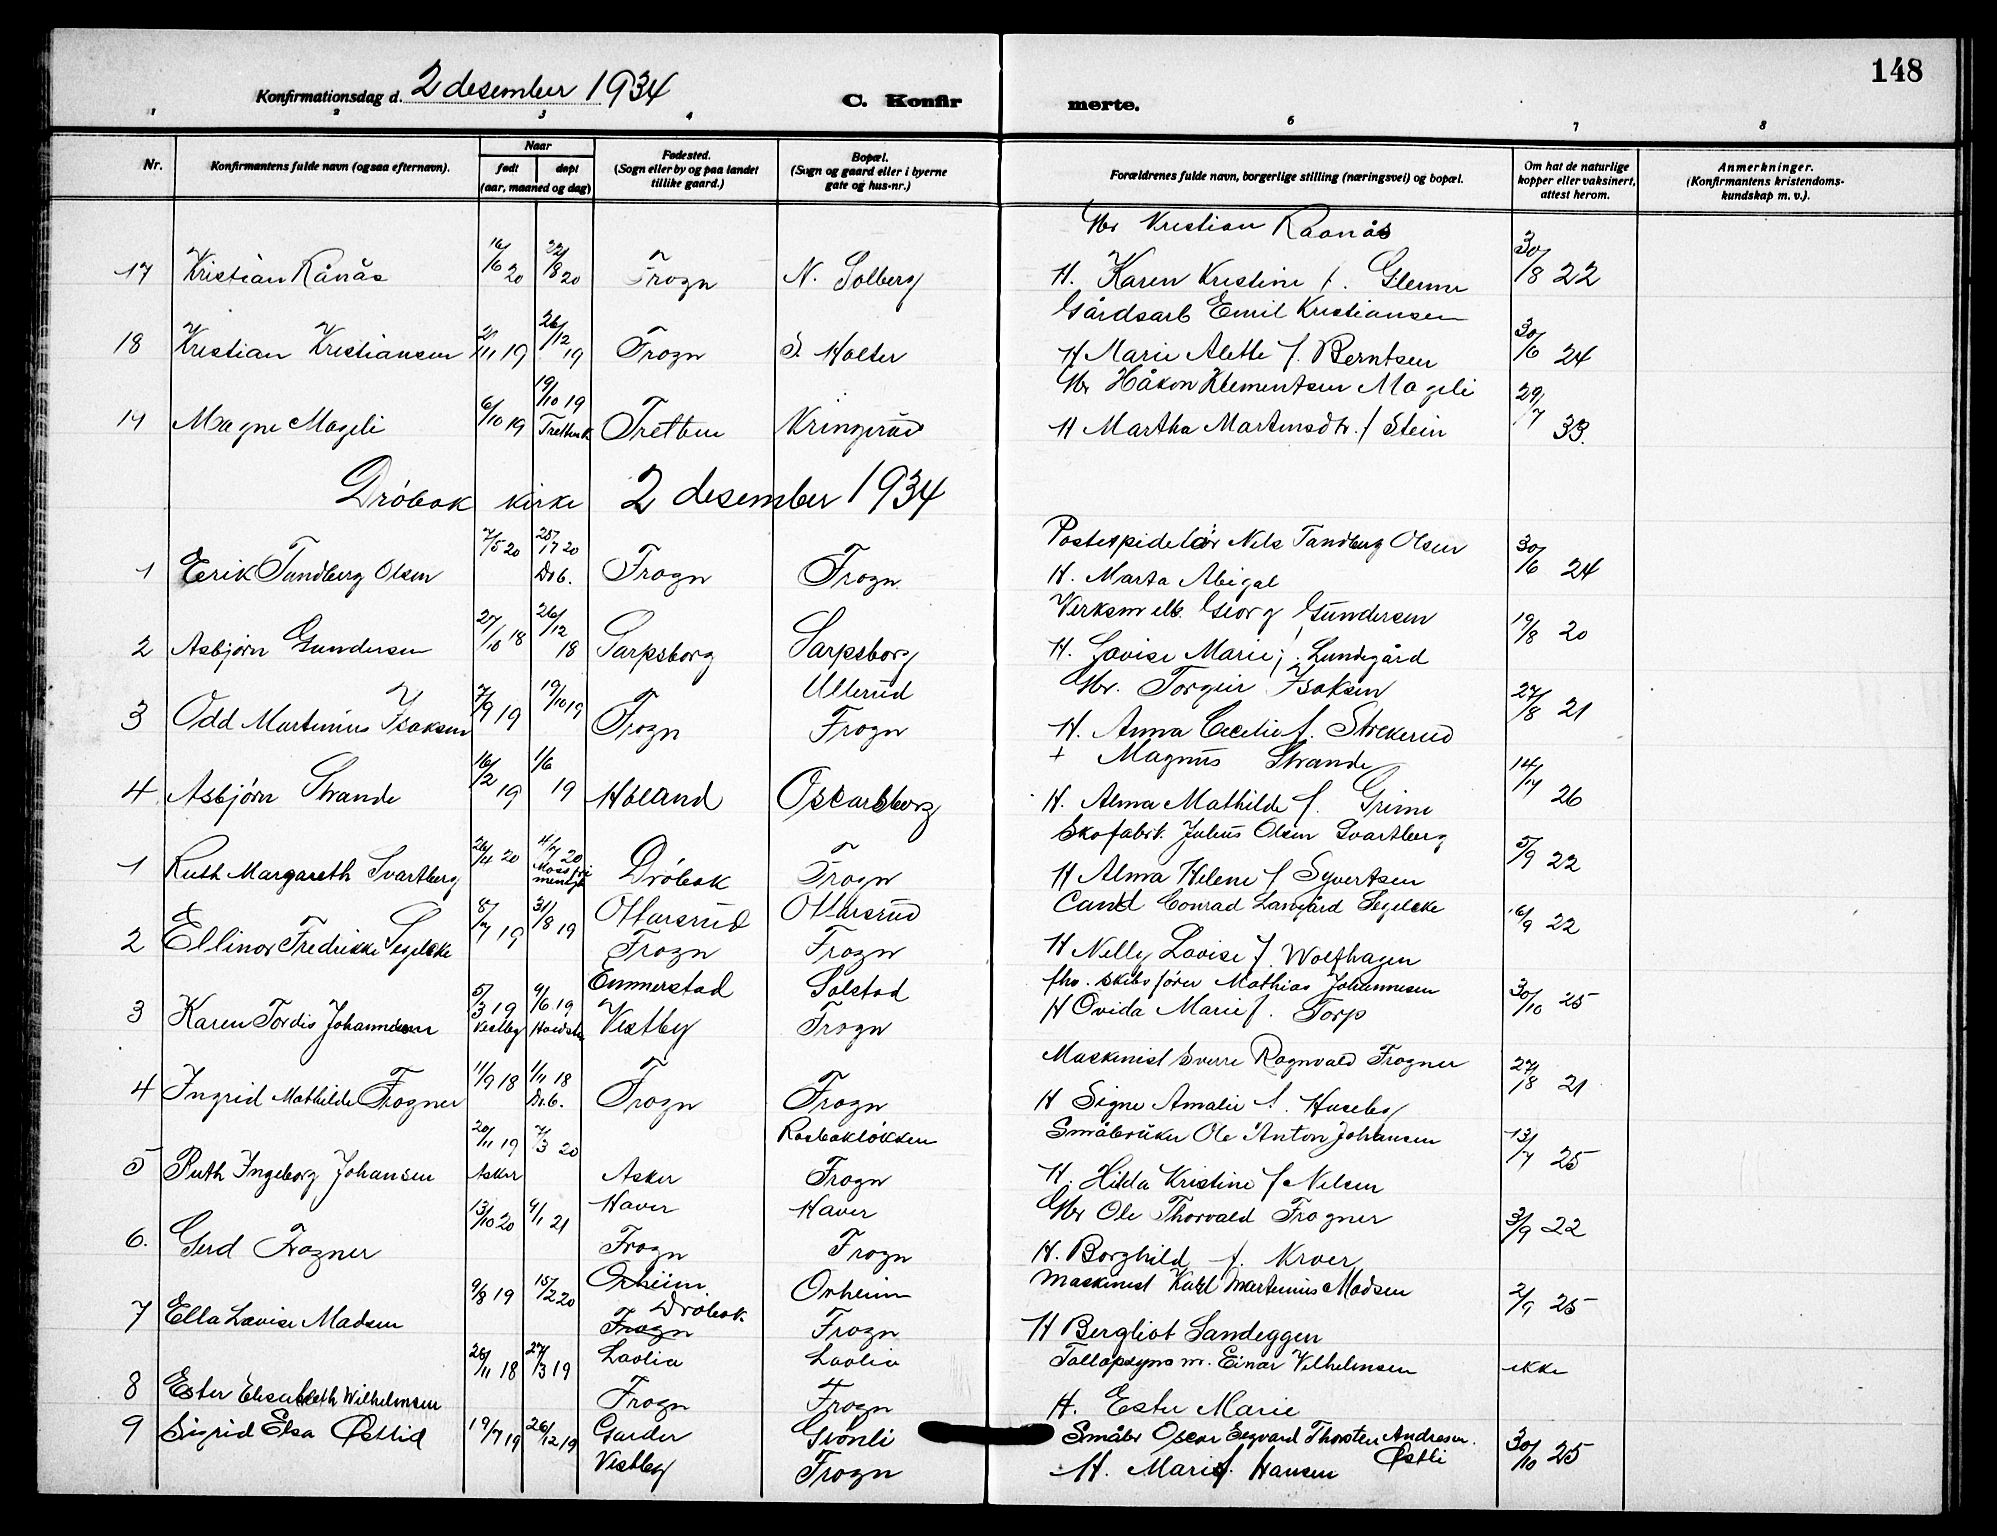 148
Konfirmationsdag d. 2 desember 1934 C. Konfirmerte.
1 2 3 4 6 7 8
Nr. Konfirmantens fulde navn (ogsaa efternavn). Naar født døpt (aar, maaned og dag) Fødested. (Sogn eller by og paa landet tillike gaard.) Bopæl. (Sogn og gaard eller i byerne gate og hus-nr.) Forældrenes fulde navn, borgerlige stilling (næringsvei) og bopæl. Om hat de naturlige kopper eller vaksinert, attest herom. Anmerkninger. (Konfirmantens kristendomskundskap m. v.).
Gbr Kristian Raanås
17 Kristian Rånås 16/6 20 22/8 20 Frogn N. Solberg H. Karen Kristine f. Glenne 30/8 22
Gårdsarb Emil Kristiansen
18 Kristian Kristiansen 2/11 19 26/12 19 Frogn S. Holter H Marie Alette f. Berntsen 30/6 24
Gbr Håkon Klementsen Mageli
19 Magne Mageli 6/10 19 19/10 19 Tretten k Tretten Kringerud H Martha Martinsdtr. f Stein 29/7 33.
Drøbak kirke 2 desember 1934
Postexpeditør Nils Tandberg Olsen
1 Erik Tandberg Olsen 7/5 20 25/7 20 Drb. Frogn Frogn H. Marta Abigal 30/6 24
Georg Gundersen
2 Asbjørn Gundersen 27/10 18 26/12 18 Sarpsborg Sarpsborg H. Lovise Marie f. Lundegård 19/8 20
Ullerud Gbr. Torgeir Isaksen
3 Odd Martinius Isaksen 7/9 19 19/10 19 Frogn Frogn H. Anna Cecilie f. Strekerud 27/8 21
+ Magnus Strande
4 Asbjørn Strande 16/2 19 1/6 19 Høland Oscarsborg H. Alma Mathilde f. Grime 14/7 26
Skofabrk. Julius Olsen Svartberg
1 Ruth Margareth Svartberg 26/4 20 4/7 20 Moss frimenigh Drøbak Frogn H Alma Helene f Syvertsen 5/9 22
Ottarsrud Ottarsrud Cand Conrad Langård Segelcke
2 Ellinor Fredrikke Segelcke 8/7 19 31/8 19 Frogn Frogn H Nelly Lovise f. Wolfhagen 16/9 22
Emmerstad Solstad fhv. skibsfører Mathias Johannesen
3 Karen Tordis Johannesen 5/3 19 Vestby 9/6 19 Vestby Frogn H Ovida Marie f. Torp 30/10 25
Maskinist Sverre Ragnvald Frogner
4 Ingrid Mathilde Frogner 11/9 18 1/11 18 Drb. Frogn Frogn H Signe Amalie f. Huseby 27/8 21
Rosbakløkken Småbruker Ole Anton Johansen
5 Ruth Ingeborg Johansen 20/11 19 Asker 7/3 20 Asker Frogn H. Hilda Kristine f Nilsen 13/7 25
Haver Haver Gbr Ole Thorvald Frogner
6. Gerd Frogner 13/10 20 9/1 21 Frogn Frogn H. Borghild f. Kroer 3/9 22
Orheim Orheim Maskinist Karl Martinius Madsen
7 Ella Lovise Madsen 9/8 19 15/2 20 Drøbak Frogn Frogn H Bergliot Sandeggen 2/9 25
Laolia Laolia Tollopsyns m. Einar Vilhelmsen
8 Ester Elisabeth Wilhelmsen 26/11 18 27/3 19 Frogn Frogn H. Ester Marie ikke
9 Sigrid Elsa Østlid 19/7 19 26/12 19 Garder Grønli Småbr Oscar Segvard Thorsten Andresen. Østli
Vestby Frogn H. Marie f. Hansen 30/10 25